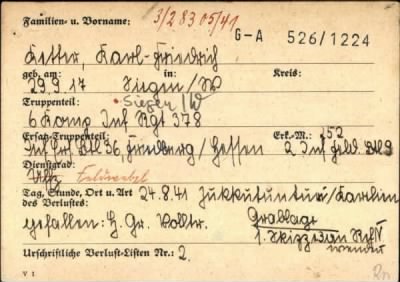 3/28305/41
Familien- u. Vorname:
G-A 526/1224
Ketter, Karl-Friedrich
geb. am: in: Kreis:
29.9.17 Siegen/W
Siegen/W
Truppenteil:
6 Komp Inf Rgt 378
Ersatz-Truppenteil: Erk.-M.: 352
Inf Ers Btl 36, Friedberg/Hessen 2 Inf
Dienstgrad:
Uffz Feldwebel
Tag, Stunde, Ort u. Art 24.8.41
des Verlustes:
gefallen: Gr. Volltr. Grablage
1. Skizze
wenden
Urschriftliche Verlust-Listen Nr.: 2.
V 1